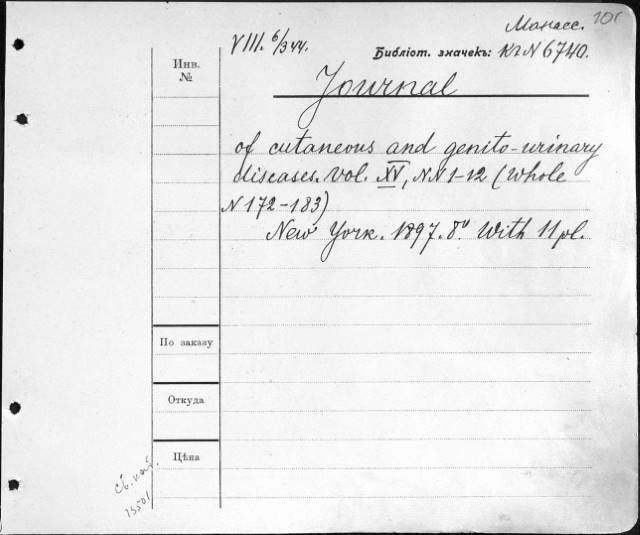 Манасс. 101
VIII. 6/344.
Библіот. значекъ: КгN 6740.
Инв.
№
Journal
of cutaneous and genito-urinary
diseases. Vol. XV, NN 1-12 (Whole
N 172-183)
New York. 1897. 8° With 11 pl.
По заказу
Откуда
Цѣна
Сб. кат.